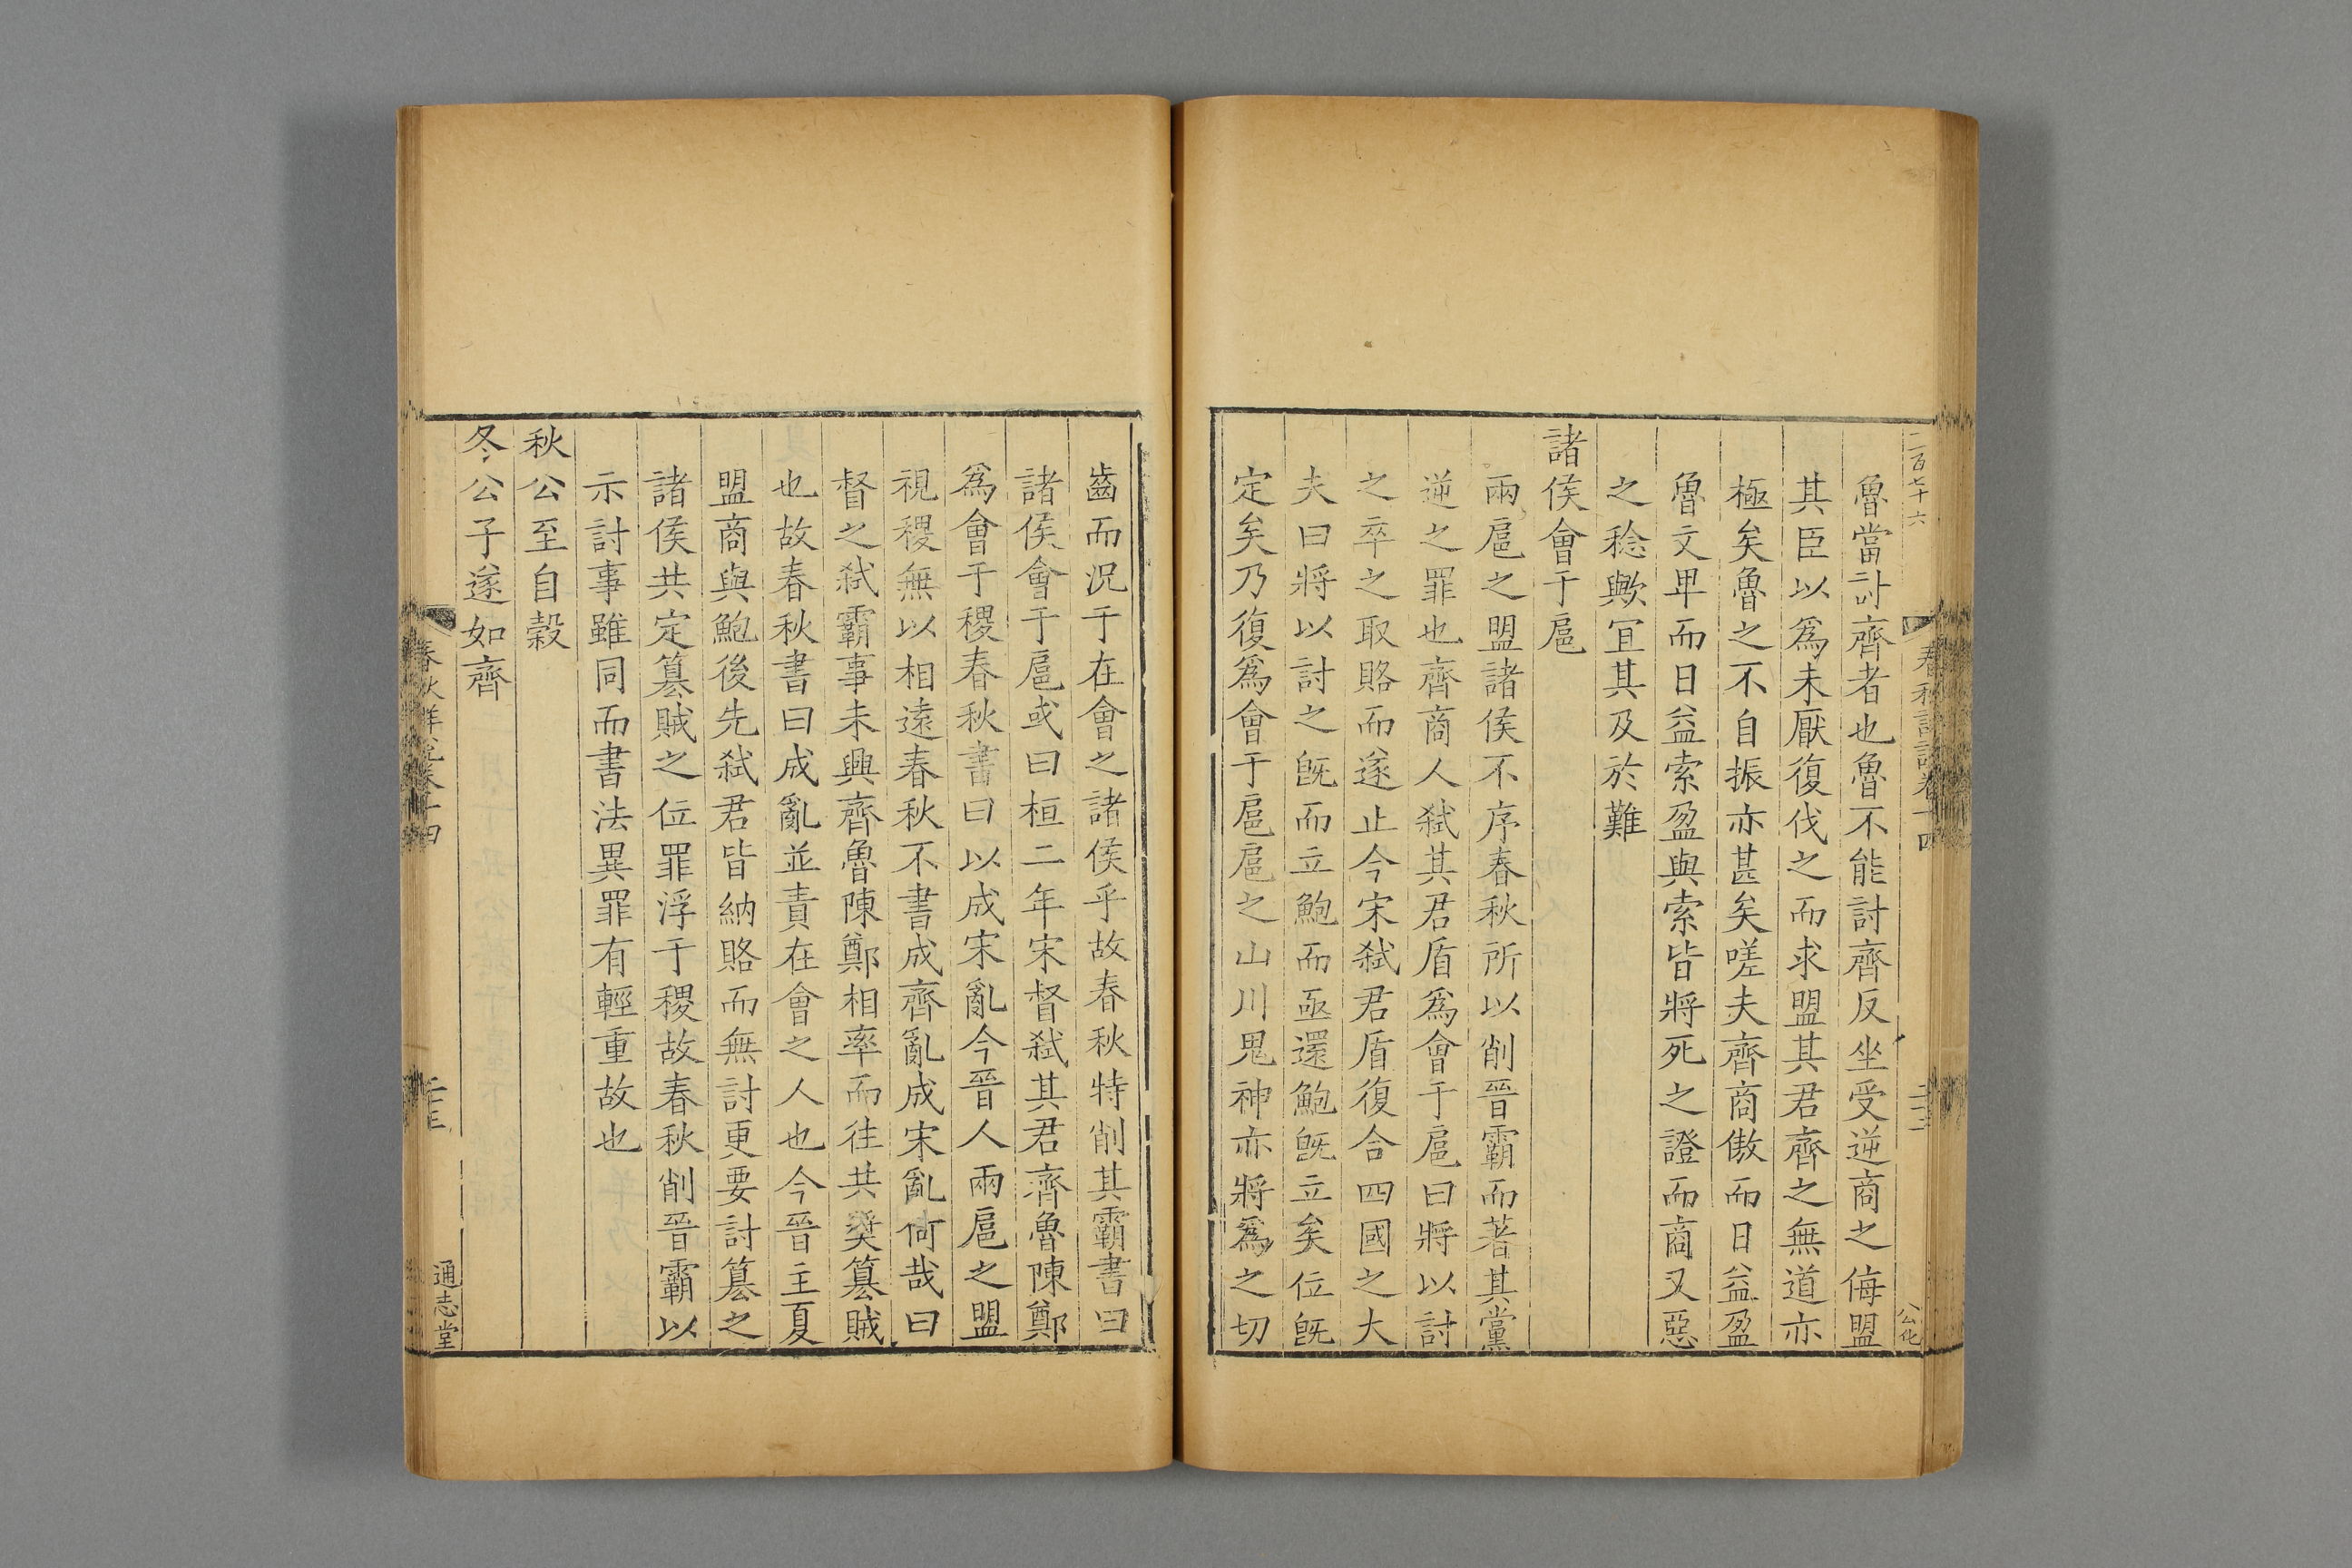 二百七十六
魯當討齊者也魯不能討齊反坐受逆商之侮盟
其臣以爲未厭復伐之而求盟其君齊之無道亦
極矣魯之不自振亦甚矣嗟夫齊商傲而日益盈
魯文卑而日益索盈與索皆將死之證而商又惡
之稔歟宜其及於難
諸侯會于扈
兩扈之盟諸侯不序春秋所以削晉霸而著其黨
逆之罪也齊商人弑其君盾爲會于扈曰將以討
之卒之取賂而遂止今宋弑君盾復合四國之大
夫曰將以討之旣而立鮑而亟還鮑旣立矣位旣
定矣乃復爲會于扈扈之山川鬼神亦將爲之切
齒而況于在會之諸侯乎故春秋特削其霸書曰
諸侯會于扈或曰桓二年宋督弑其君齊魯陳鄭
爲會于稷春秋書曰以成宋亂今晉人兩扈之盟
視稷無以相遠春秋不書成齊亂成宋亂何哉曰
督之弑霸事未興齊魯陳鄭相率而往共奬簒賊
也故春秋書曰成亂並責在會之人也今晉主夏
盟商與鮑後先弑君皆納賂而無討更要討簒之
諸侯共定簒賊之位罪浮于稷故春秋削晉霸以
示討事雖同而書法異罪有輕重故也
秋公至自穀
冬公子遂如齊
春秋詳說卷十四
通志堂